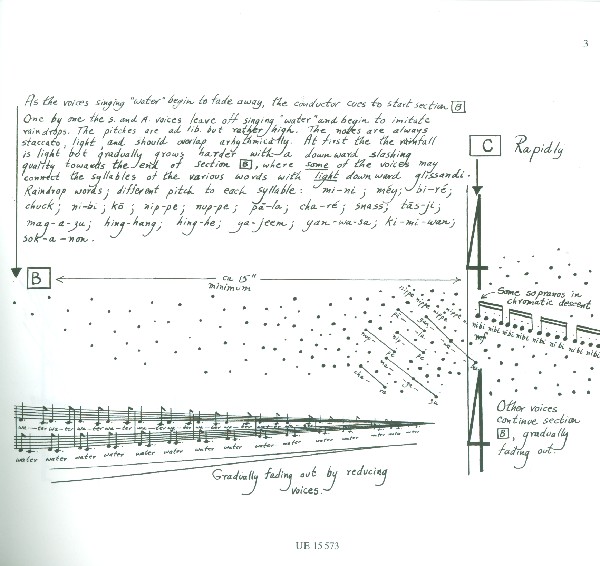 3
As the voices singing "water" begin to fade away, the conductor cues to start section B
One by one the S. and A. voices leave off singing "water" and begin to imitate
raindrops. The pitches are ad lib. but rather high. The notes are always
staccato, light and should overlap arhythmically. At first the the rainfall
is light but gradually grows harder with a downward sloshing
quality towards the end of section B, where some of the voices may
connect the syllables of the various words with light downward glissandi.
Raindrop words; different pitch to each syllable: mi-ni; mey; bi-ré;
chuck; ni-bi; kō; nip-pe; nup-pe; pā-la; cha-ré; snass; tās-ji;
mag-a-zu; hing-hang; hing-he; ya-jeem; yan-wa-sa; ki-mi-wan;
sok-a-non.
C Rapidly
B
ca 15"
minimum
Some sopranos in
chromatic descent
nibi nibi nibi nibi ni bi nibi nibi nibi
nippe nippe nippe nippe
wa-ter wa-ter wa-ter wa-ter wa-ter
water water water water water water water water water water
Other voices
continue section
B, gradually
fading out.
Gradually fading out by reducing
voices.
UE 15 573